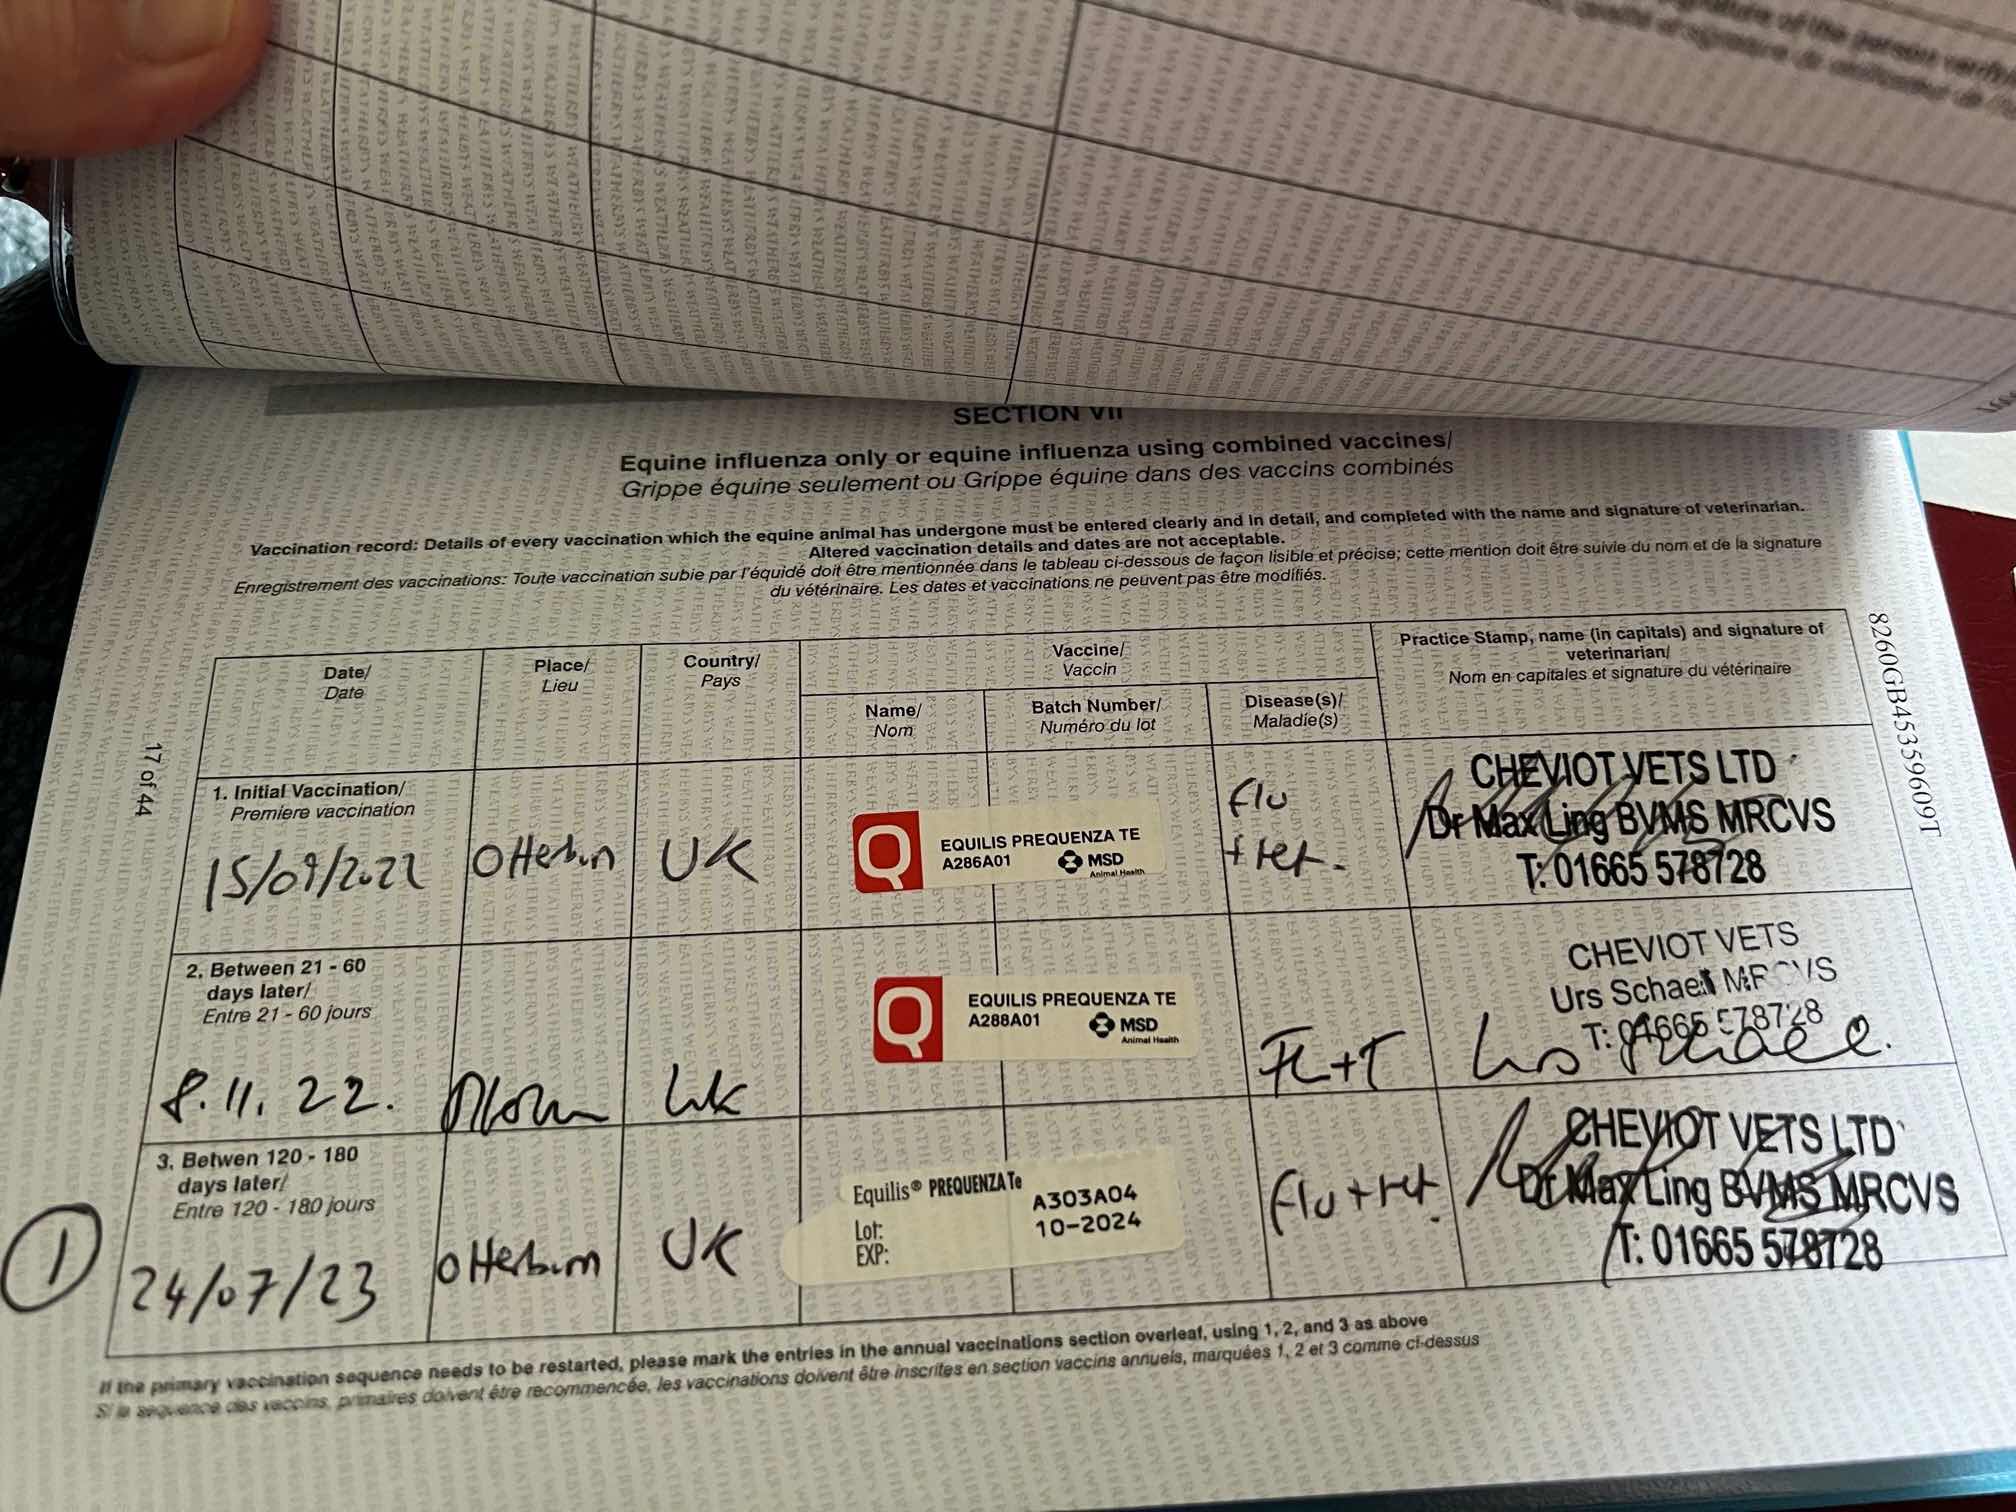 signature of the person verify
SECTION VII
Equine influenza only or equine influenza using combined vaccines/
Grippe équine seulement ou Grippe équine dans des vaccins combinés
Vaccination record: Details of every vaccination which the equine animal has undergone must be entered clearly and in detail, and completed with the name and signature of veterinarian.
Altered vaccination details and dates are not acceptable.
Enregistrement des vaccinations: Toute vaccination subie par l'équidé doit être mentionnée dans le tableau ci-dessous de façon lisible et précise; cette mention doit être suivie du nom et de la signature
du vétérinaire. Les dates et vaccinations ne peuvent pas être modifiés.
Date/
Date
Place/
Lieu
Country/
Pays
Vaccine/
Vaccin
Name/
Nom
Batch Number/
Numéro du lot
Disease(s)/
Maladie(s)
Practice Stamp, name (in capitals) and signature of
veterinarian/
Nom en capitales et signature du vétérinaire
1. Initial Vaccination/
Premiere vaccination
15/09/2022
Otterburn
UK
Q
EQUILIS PREQUENZA TE
A286A01
MSD
Animal Health
flu
+ tet.
CHEVIOT VETS LTD
Dr Max Ling BVMS MRCVS
T: 01665 578728
2. Between 21 - 60
days later/
Entre 21 - 60 jours
8.11.22.
UK
Q
EQUILIS PREQUENZA TE
A288A01
MSD
Animal Health
FL+T
CHEVIOT VETS
Urs Schaell MRCVS
T: 01665 578728
3. Betwen 120 - 180
days later/
Entre 120 - 180 jours
1
24/07/23
Otterburn
UK
Equilis® PREQUENZA Te
Lot:
EXP:
A303A04
10-2024
flu + tet.
CHEVIOT VETS LTD
Dr Max Ling BVMS MRCVS
T: 01665 578728
If the primary vaccination sequence needs to be restarted, please mark the entries in the annual vaccinations section overleaf, using 1, 2, and 3 as above
Si la sequence des vaccins, primaires doivent être recommencée, les vaccinations doivent être inscrites en section vaccins annuels, marquées 1, 2 et 3 comme ci-dessus
17 of 44
8260GB45359609T
WEATHERBYS